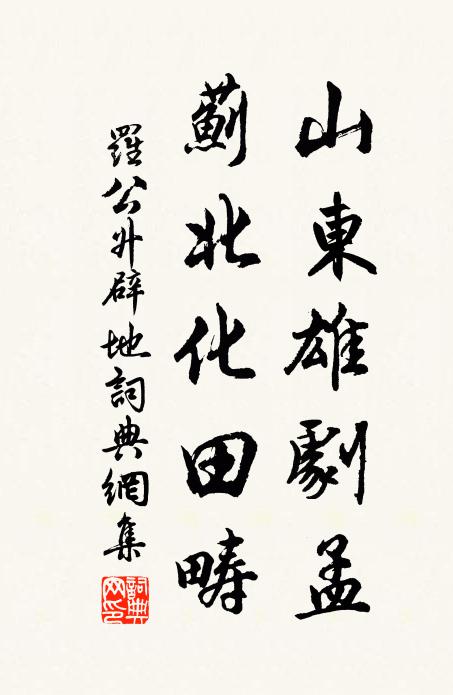 山東雄劇孟
薊北化田疇
羅公升辟地詞典網集
詞典網印